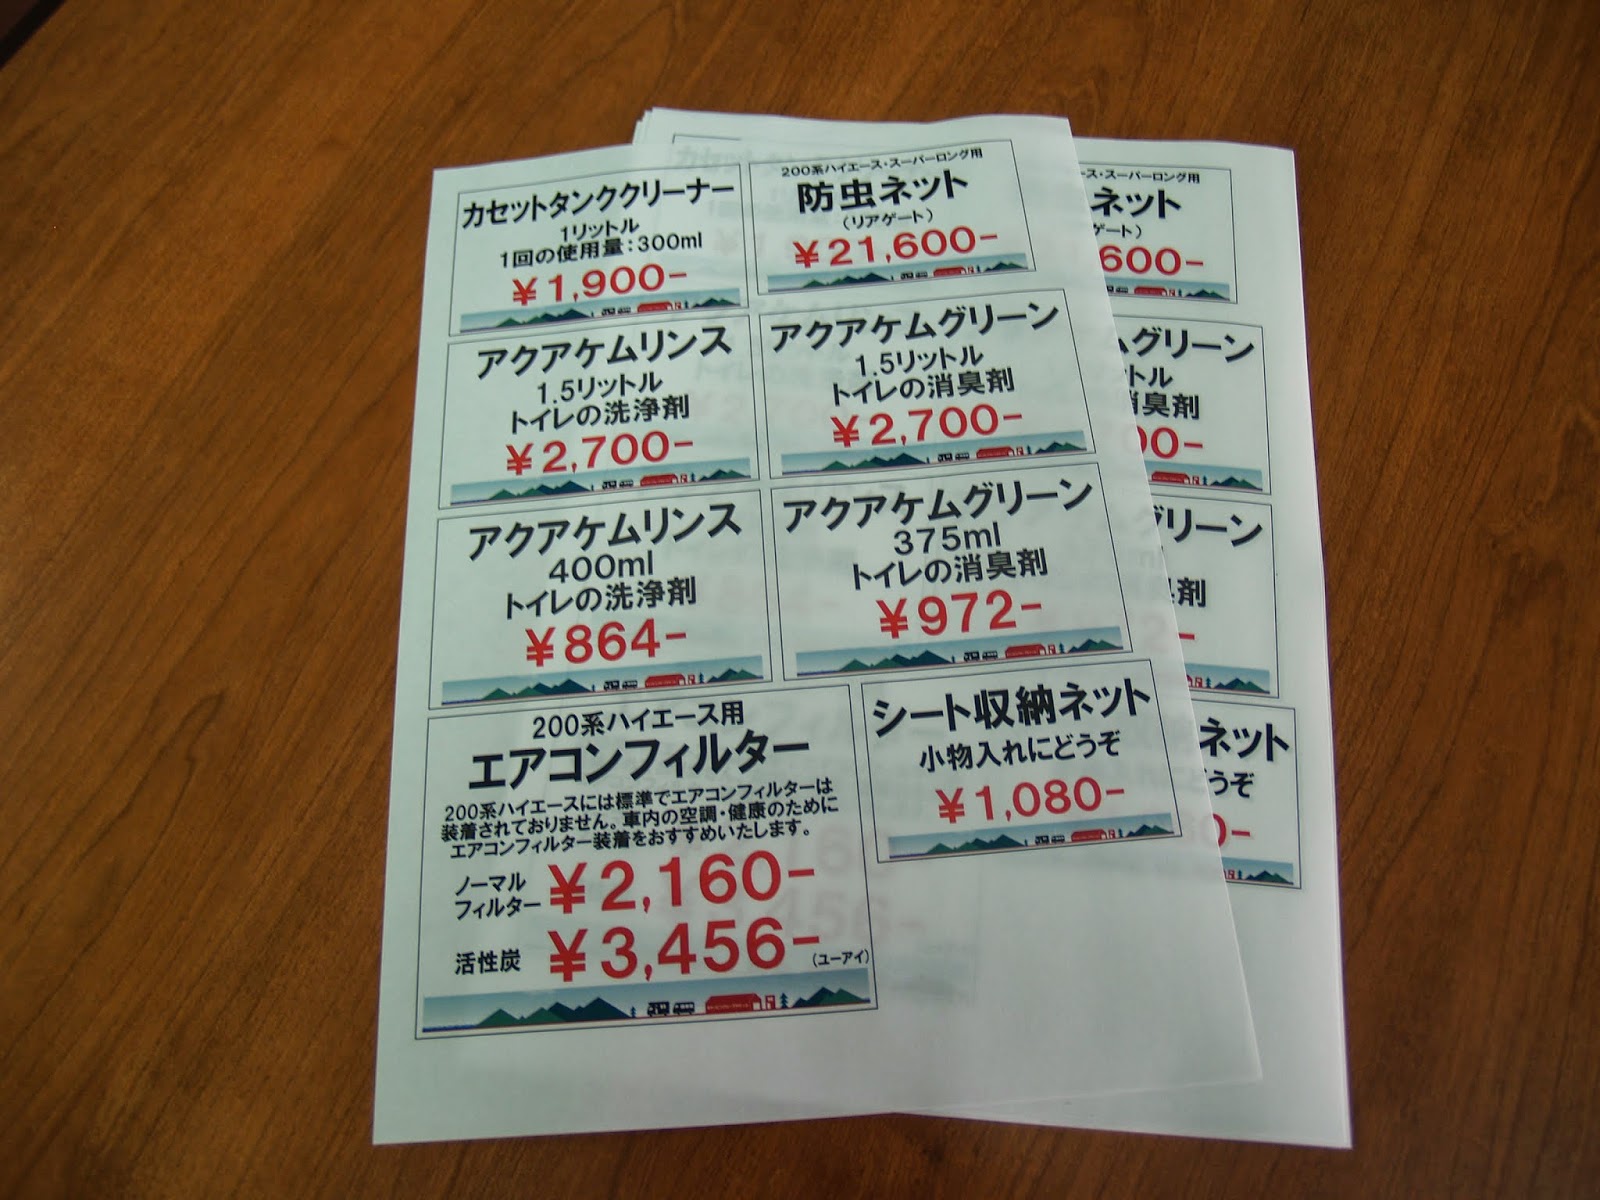 カセットタンククリーナー
1リットル
1回の使用量：300ml
￥1,900-
200系ハイエース・スーパーロング用
防虫ネット
（リアゲート）
￥21,600-
アクアケムリンス
1.5リットル
トイレの洗浄剤
￥2,700-
アクアケムグリーン
1.5リットル
トイレの消臭剤
￥2,700-
アクアケムリンス
400ml
トイレの洗浄剤
￥864-
アクアケムグリーン
375ml
トイレの消臭剤
￥972-
200系ハイエース用
エアコンフィルター
200系ハイエースには標準でエアコンフィルターは
装着されておりません。車内の空調・健康のために
エアコンフィルター装着をおすすめいたします。
ノーマル
フィルター
￥2,160-
活性炭
￥3,456-
（ユーアイ）
シート収納ネット
小物入れにどうぞ
￥1,080-
ース・スーパーロング用
ネット
ゲート）
600-
ムグリーン
トル
消臭剤
00-
グリーン
ml
臭剤
2-
ネット
うぞ
0-